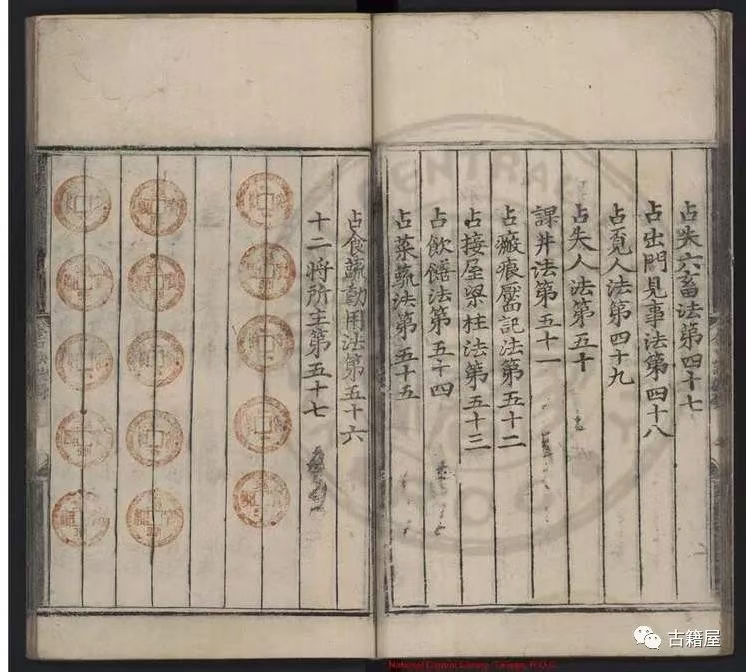 占失六畜法第四十七
占出門見事法第四十八
占覓人法第四十九
占失人法第五十
課井法第五十一
占瘢痕靨記法第五十二
占接屋梁柱法第五十三
占飲饌法第五十四
占菜蔬法第五十五
占食蔬動用法第五十六
十二将所主第五十七
National Central Library, Taiwan, R.O.C.
古籍屋